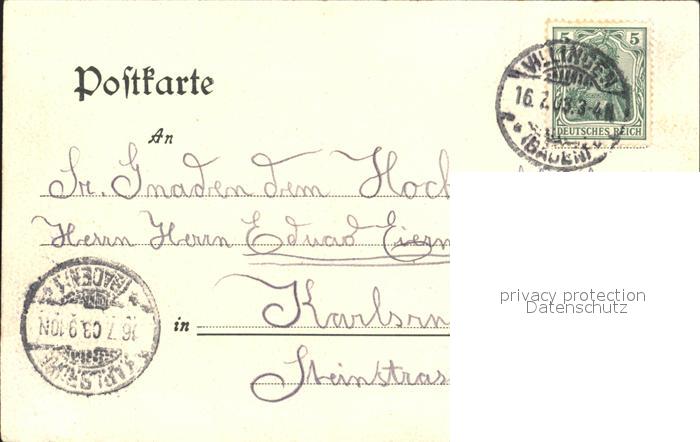 5 5
DEUTSCHES REICH
VILLINGEN
16.7.03.3-4N
(BADEN)
Postkarte
An
Sr. Gnaden dem Hoch
Herrn Herrn Eduard Eierm
in Karlsru
Steinstras
(BADEN) 1.
16.7.03.9-10N
KARLSRUHE
privacy protection
Datenschutz